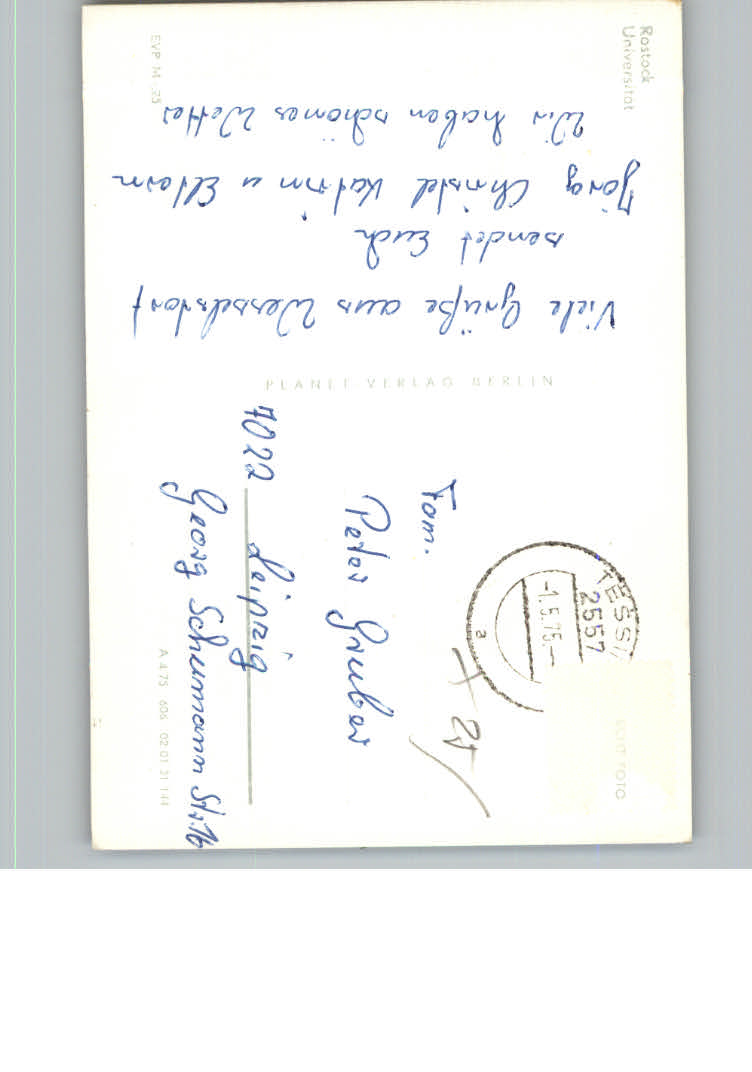 Rostock
Universität
EVP M -,25
Viele Grüße aus Wesselstorf
sendet Euch
Jörg Christel Katrin u Eltern
Wir haben schönes Wetter
PLANET-VERLAG BERLIN
TESSI
2557
-1.5.75.-
a
ECHT FOTO
Fam.
Peter Gruber
7022 Leipzig
Georg Schumann Str. 16
A 4 75 606 02 01 31 144